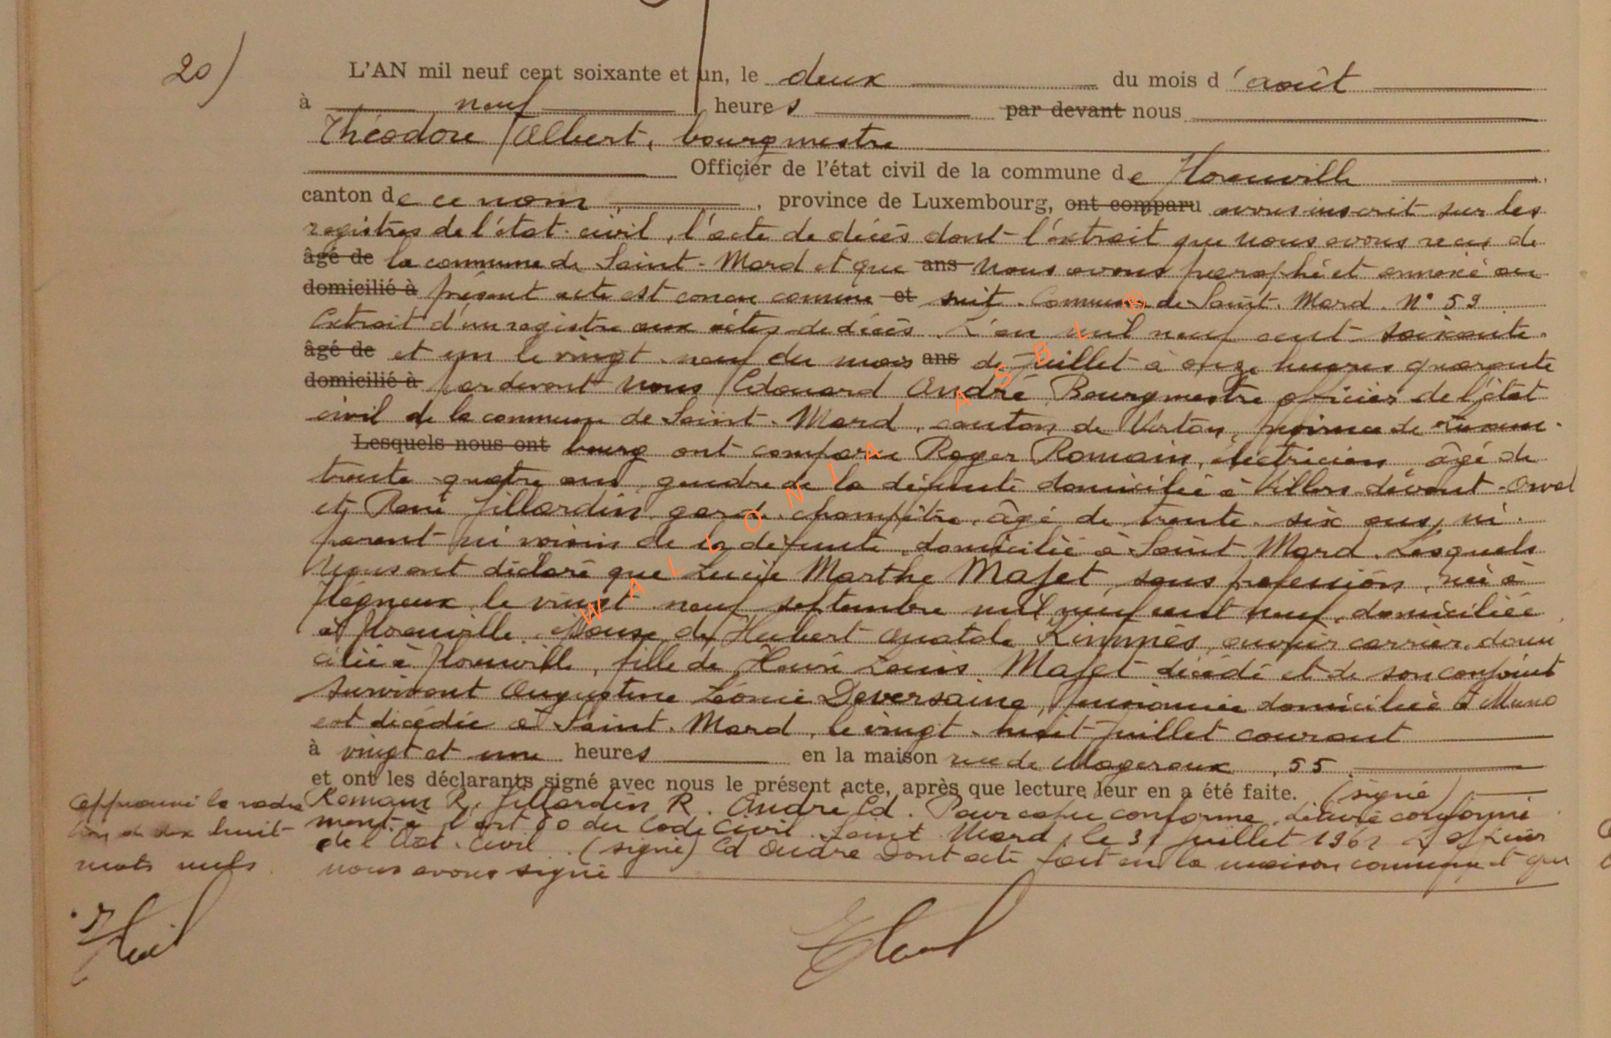 20)
L'AN mil neuf cent soixante et un, le deux du mois d'août
à neuf heures par devant nous
Théodore Albert, bourgmestre
Officier de l'état civil de la commune de Florenville
canton de ce nom, province de Luxembourg, ont comparu avons inscrit sur les
registres de l'état-civil, l'acte de décès dont l'extrait que nous avons reçu de
âgé de la commune de Saint-Mard et que ans nous avons paraphé et annexé au
domicilié à présent acte est conçu comme et suit. Commune de Saint-Mard. N° 59
Extrait d'un registre aux actes de décès. L'an mil neuf cent soixante
âgé de et un le vingt-neuf du mois ans de juillet à onze heures quarante
domicilié à pardevant nous Edouard André Bourgmestre officier de l'état
civil de la commune de Saint-Mard, canton de Virton, province de Luxem-
Lesquels nous ont bourg ont comparu Roger Romain, électricien, âgé de
trente quatre ans, gendre de la défunte domicilié à Villers-devant-Orval
et René Jillardin garde-champêtre, âgé de trente-six ans, ni
parent ni voisin de la défunte, domicilié à Saint-Mard. Lesquels
nous ont déclaré que Lucie Marthe Majet, sans profession, née à
le vingt-neuf septembre mil neuf cent neuf, domiciliée
à Florenville épouse de Hubert Anatole ouvrier carrier, domi
cilié à Florenville, fille de Henri Louis Majet décédé et de son conjoint
survivant Augustine Léonie Deversaine, pensionnée domiciliée à Muno
est décédée à Saint-Mard, le vingt-huit juillet courant
à vingt et une heures en la maison rue de Mageroux, 55
et ont les déclarants signé avec nous le présent acte, après que lecture leur en a été faite. (signé)
Romain R, Jillardin R. André Ed. Pour copie conforme, délivré conformé
ment à l'art 80 du Code Civil. Saint Mard, le 31 juillet 1961 L'officier
de l'Etat-Civil. (signé) Ed André Dont acte fait en la maison commune et que
nous avons signé
Approuvé la radia
tion de dix huit
mots nuls.
WALLONIA ASBL